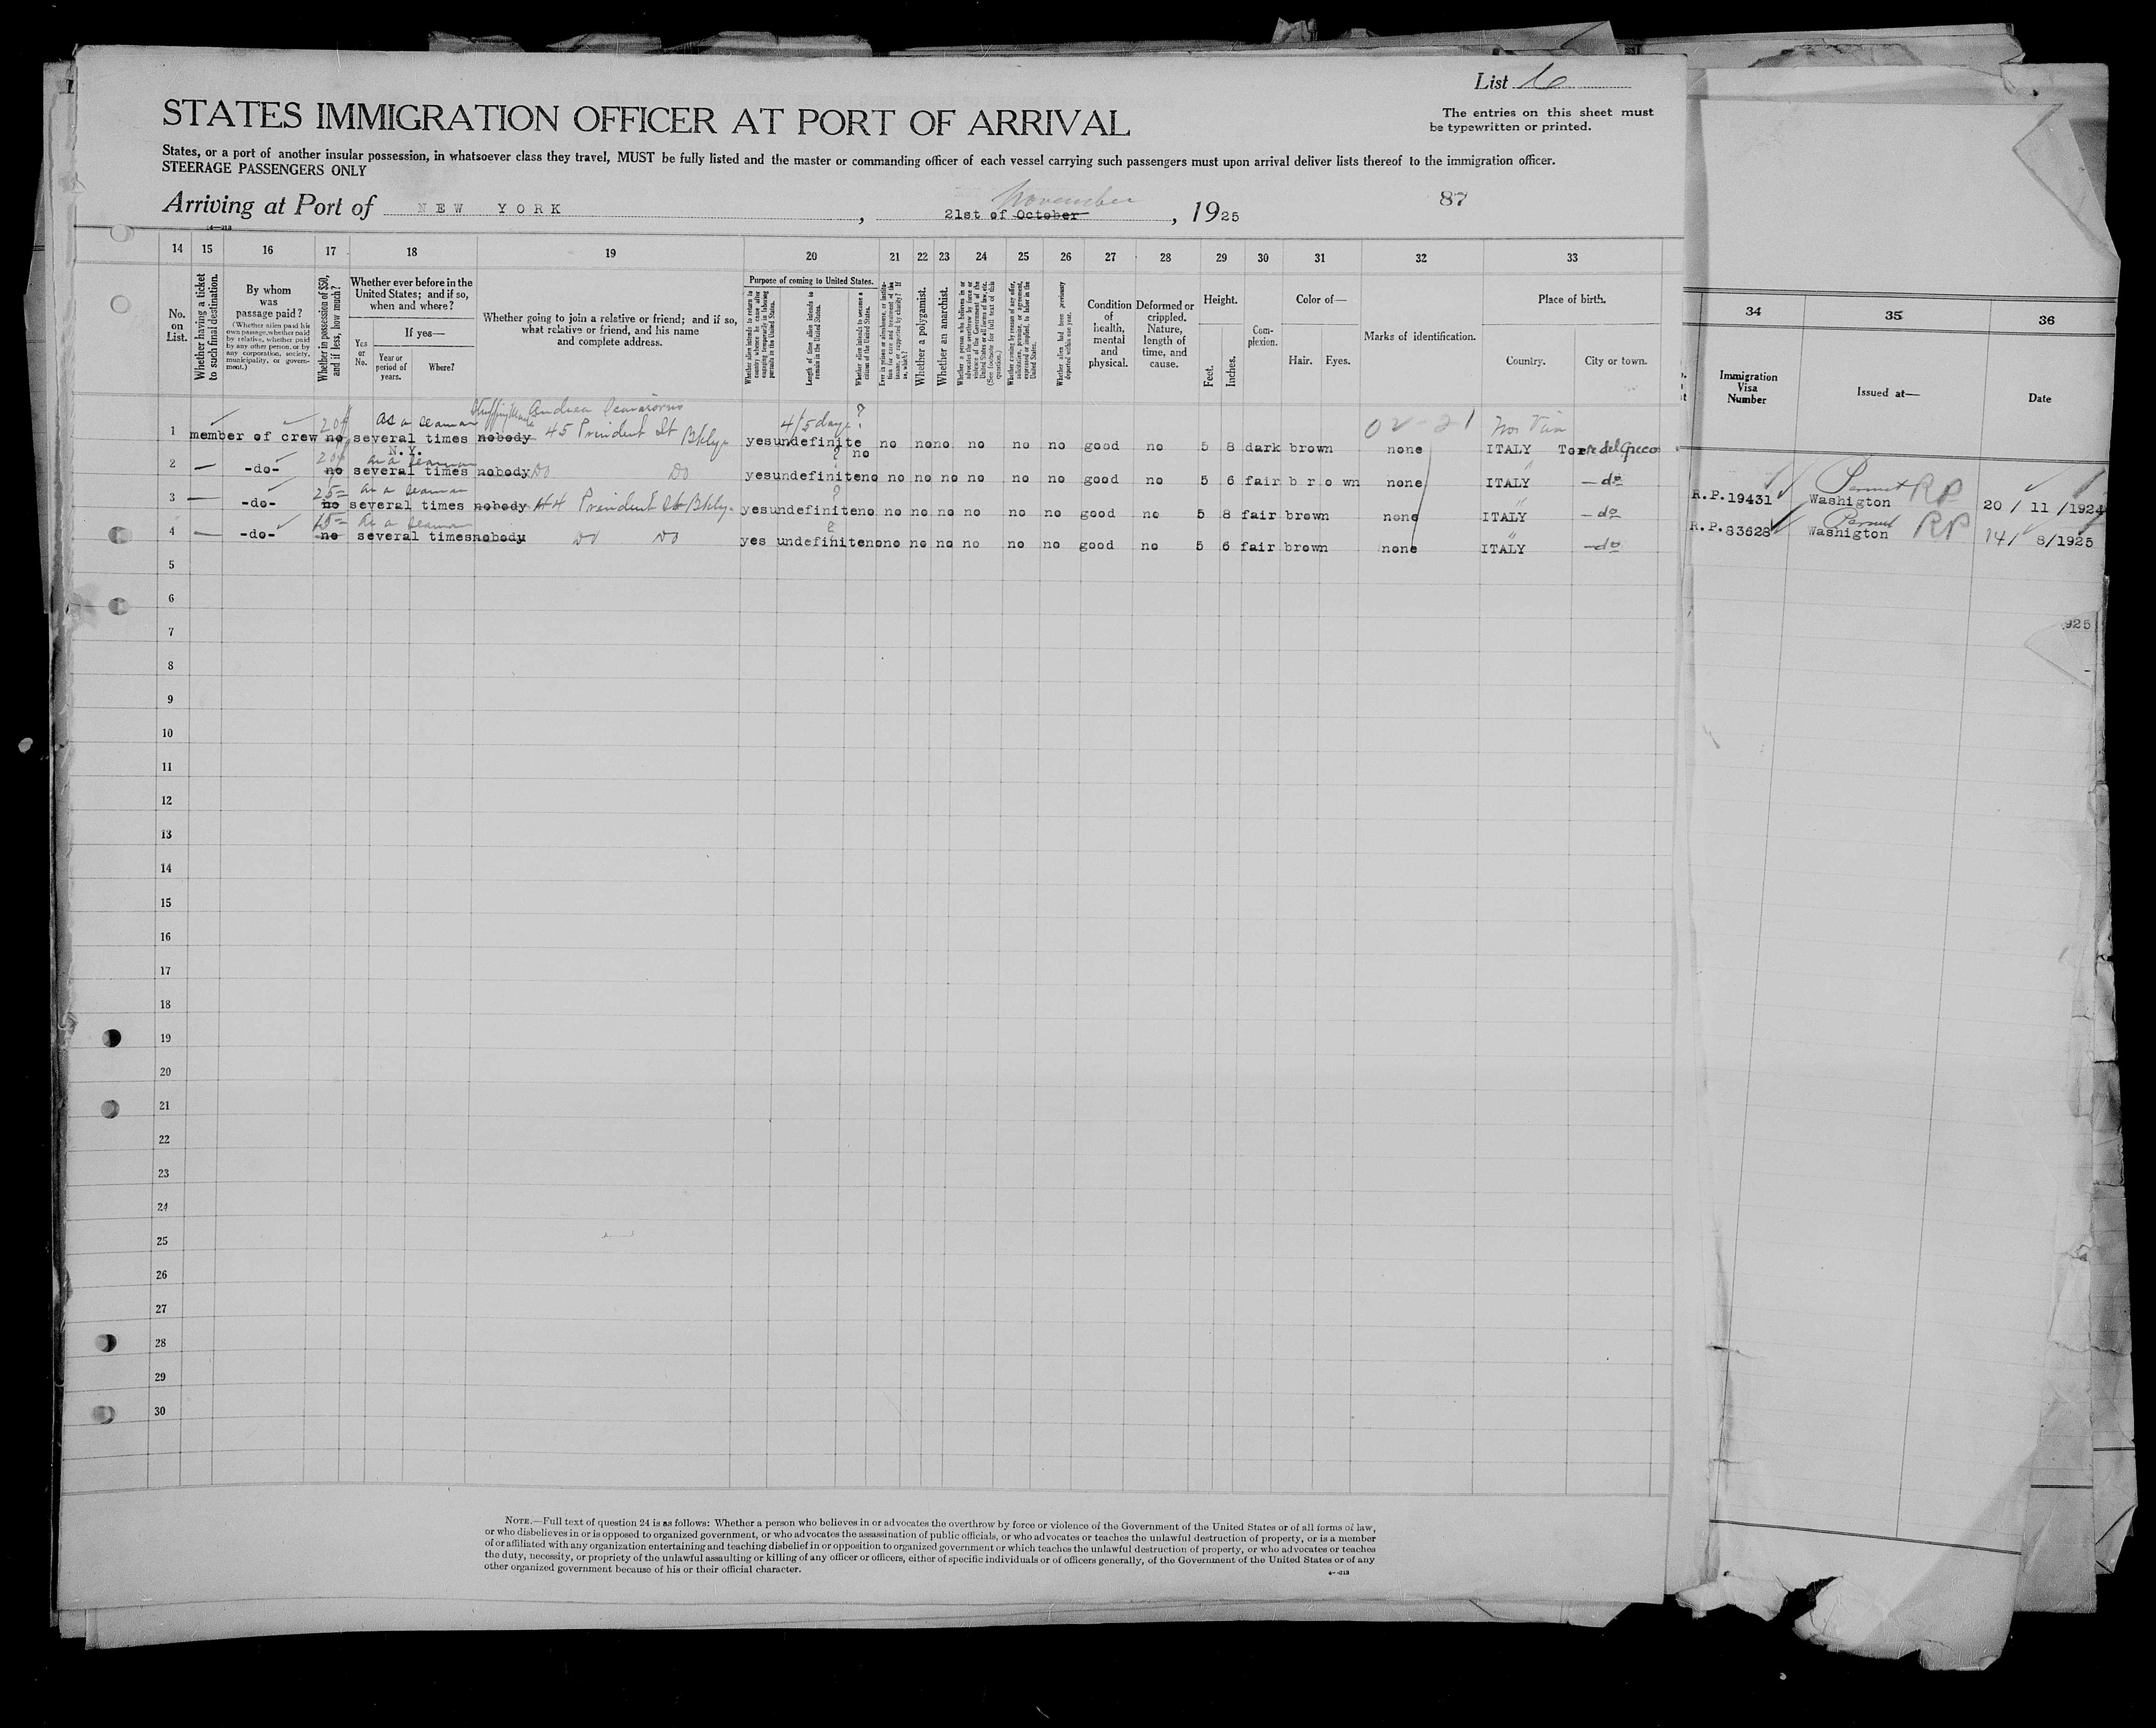 List
STATES IMMIGRATION OFFICER AT PORT OF ARRIVAL
The entries on this sheet must
be typewritten or printed.
States, or a port of another insular possession, in whatsoever class they travel, MUST be fully listed and the master or commanding officer of each vessel carrying such passengers must upon arrival deliver lists thereof to the immigration officer.
STEERAGE PASSENGERS ONLY
Arriving at Port of NEW YORK, 21st of October November, 1925
87
14 15 16 17 18 19 20 21 22 23 24 25 26 27 28 29 30 31 32 33
34 35 36
No. on List.
Whether having a ticket to such final destination.
By whom was passage paid?
(Whether alien paid his own passage, whether paid by relative, whether paid by any other person, or by any corporation, society, municipality, or government.)
Whether in possession of $50, and if less, how much?
Whether ever before in the United States; and if so, when and where?
Yes or No.
If yes—
Year or period of years.
Where?
Whether going to join a relative or friend; and if so, what relative or friend, and his name and complete address.
Purpose of coming to United States.
Whether alien intends to return to country whence he came after engaging temporarily in laboring pursuits in the United States.
Length of time alien intends to remain in the United States.
Whether alien intends to become a citizen of the United States.
Ever in prison or almshouse, or institution for care and treatment of the insane, or supported by charity? If so, which?
Whether a polygamist.
Whether an anarchist.
Whether a person who believes in or advocates the overthrow by force or violence of the Government of the United States or all forms of law, etc. (See footnote for full text of this question.)
Whether coming by reason of any offer, solicitation, promise, or agreement, expressed or implied, to labor in the United States.
Whether alien had been previously deported within one year.
Condition of health, mental and physical.
Deformed or crippled. Nature, length of time, and cause.
Height.
Feet.
Inches.
Complexion.
Color of—
Hair.
Eyes.
Marks of identification.
Place of birth.
Country.
City or town.
Immigration Visa Number
Issued at—
Date
1 member of crew 20 no as a seaman several times N.Y. nobody Andrea 45 President St Bklyn 4/5 days ? yes undefinite no no no no no no no good no 5 8 dark brown none ITALY Torre del Greco
2 — -do- 20 no as a seaman several times nobody Do Do yes undefinite no no no no no no no good no 5 6 fair brown none ITALY — do
3 — -do- 25= no as a seaman several times nobody 44 President St Bklyn ? yes undefinite no no no no no no no good no 5 8 fair brown none ITALY — do
R.P.19431 Permit Washigton RP 20 / 11 /1924
4 — -do- no as a seaman several times nobody Do Do ? yes undefinite no no no no no no no good no 5 6 fair brown none ITALY — do
R.P.83628 Permit Washigton RP 14/ 8/1925
02-21
5
6
7
925
8
9
10
11
12
13
14
15
16
17
18
19
20
21
22
23
24
25
26
27
28
29
30
NOTE.—Full text of question 24 is as follows: Whether a person who believes in or advocates the overthrow by force or violence of the Government of the United States or of all forms of law,
or who disbelieves in or is opposed to organized government, or who advocates the assassination of public officials, or who advocates or teaches the unlawful destruction of property, or is a member
of or affiliated with any organization entertaining and teaching disbelief in or opposition to organized government or which teaches the unlawful destruction of property, or who advocates or teaches
the duty, necessity, or propriety of the unlawful assaulting or killing of any officer or officers, either of specific individuals or of officers generally, of the Government of the United States or of any
other organized government because of his or their official character.